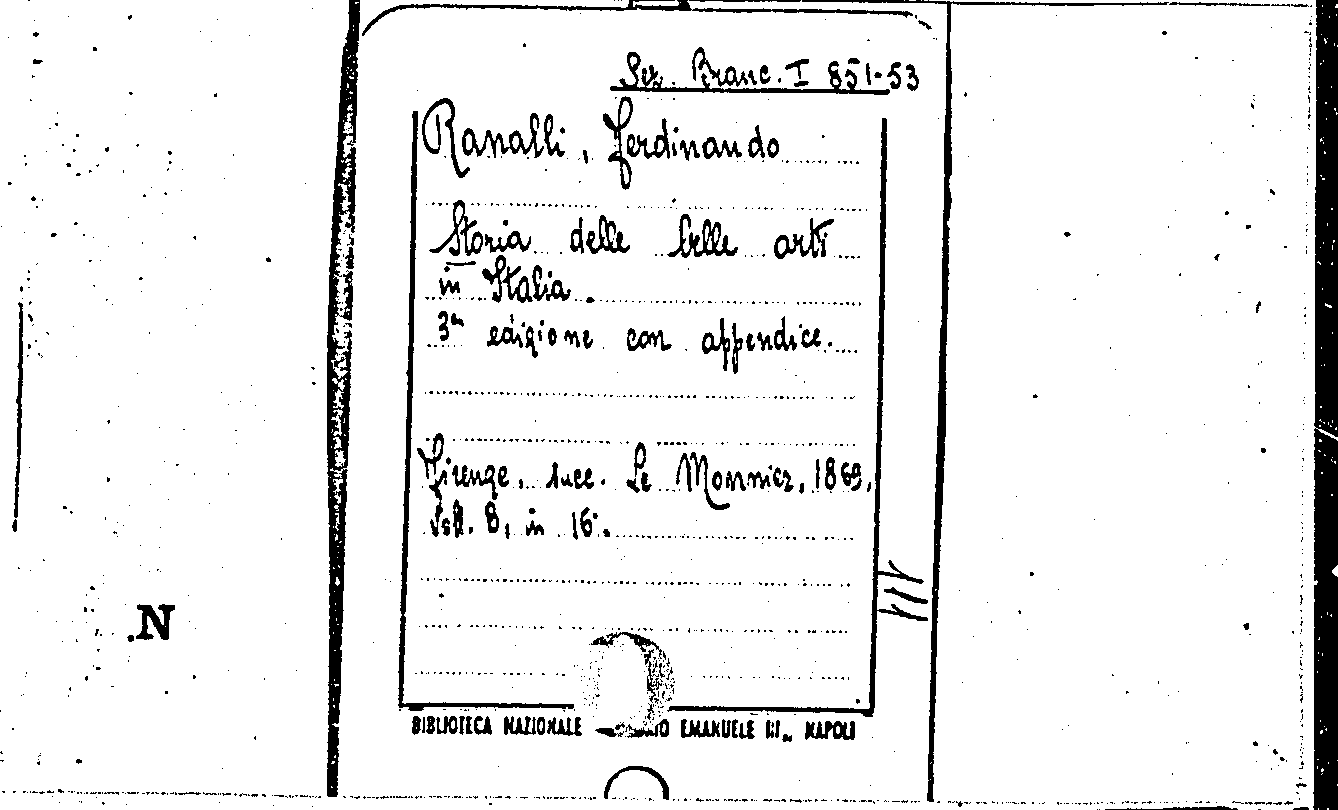 Sez. Branc. I 851-53
Ranalli, Ferdinando
Storia delle belle arti
in Italia.
3ª edizione con appendice.
Firenze, succ. Le Monnier, 1869,
Voll. 3, in 16°.
N
BIBLIOTECA NAZIONALE EMANUELE III„ NAPOLI